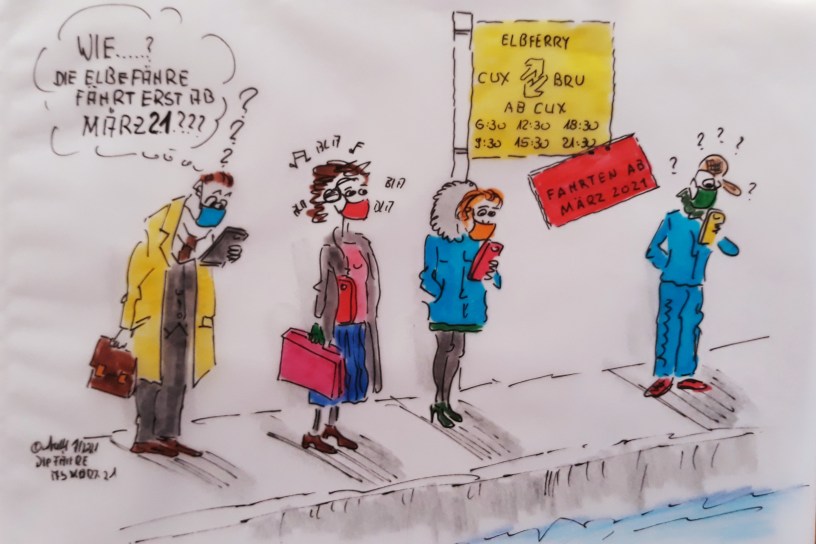 WIE.....?
DIE ELBEFÄHRE
FÄHRT ERST AB
MÄRZ 21.???
?
?
?
ELBFERRY
CUX BRU
AB CUX
6:30 12:30 18:30
9:30 15:30 21:30
FAHRTEN AB
MÄRZ 2021
? ? ? ? ?
DIE FÄHRE